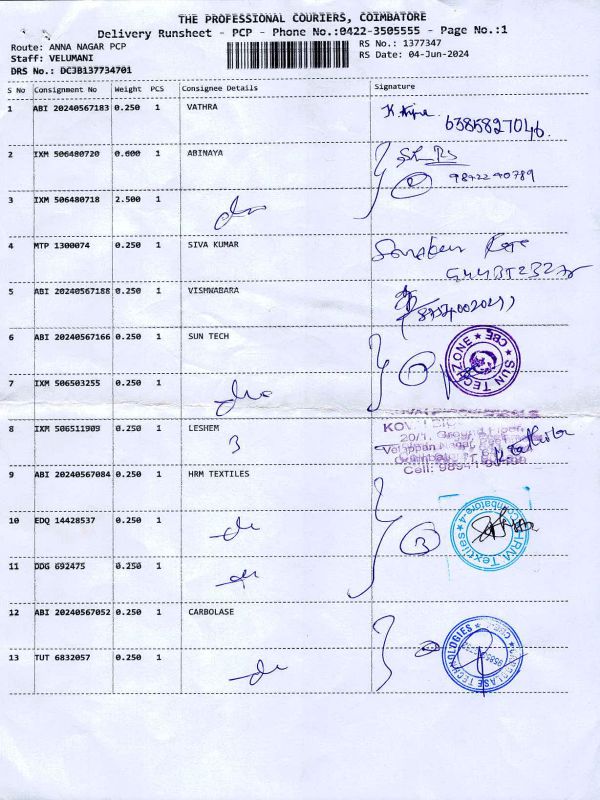 THE PROFESSIONAL COURIERS, COIMBATORE
Delivery Runsheet - PCP - Phone No.:0422-3505555 - Page No.:1
Route: ANNA NAGAR PCP RS No.: 1377347
Staff: VELUMANI RS Date: 04-Jun-2024
DRS No.: DCJB137734701
S No Consignment No Weight PCS Consignee Details Signature
1 ABI 20240567183 0.250 1 VATHRA
6385827046.
2 IXM 506480720 0.600 1 ABINAYA
3 IXM 506480718 2.500 1
4 MTP 1300074 0.250 1 SIVA KUMAR
5 ABI 20240567188 0.250 1 VISHWABARA
6 ABI 20240567166 0.250 1 SUN TECH
SUN TECHZONE ★ CBE ★
7 IXM 506503255 0.250 1
8 IXM 506511909 0.250 1 LESHEM
3
20/1, Ground Floor,
9 ABI 20240567084 0.250 1 HRM TEXTILES
10 EDQ 14428537 0.250 1
3
HRM Textiles ★ Coimbatore-4 ★
11 DDG 692475 0.250 1
12 ABI 20240567052 0.250 1 CARBOLASE
13 TUT 6832057 0.250 1